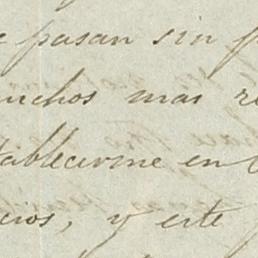 pasan sin
muchos mas
tablecerme en
cios, y este